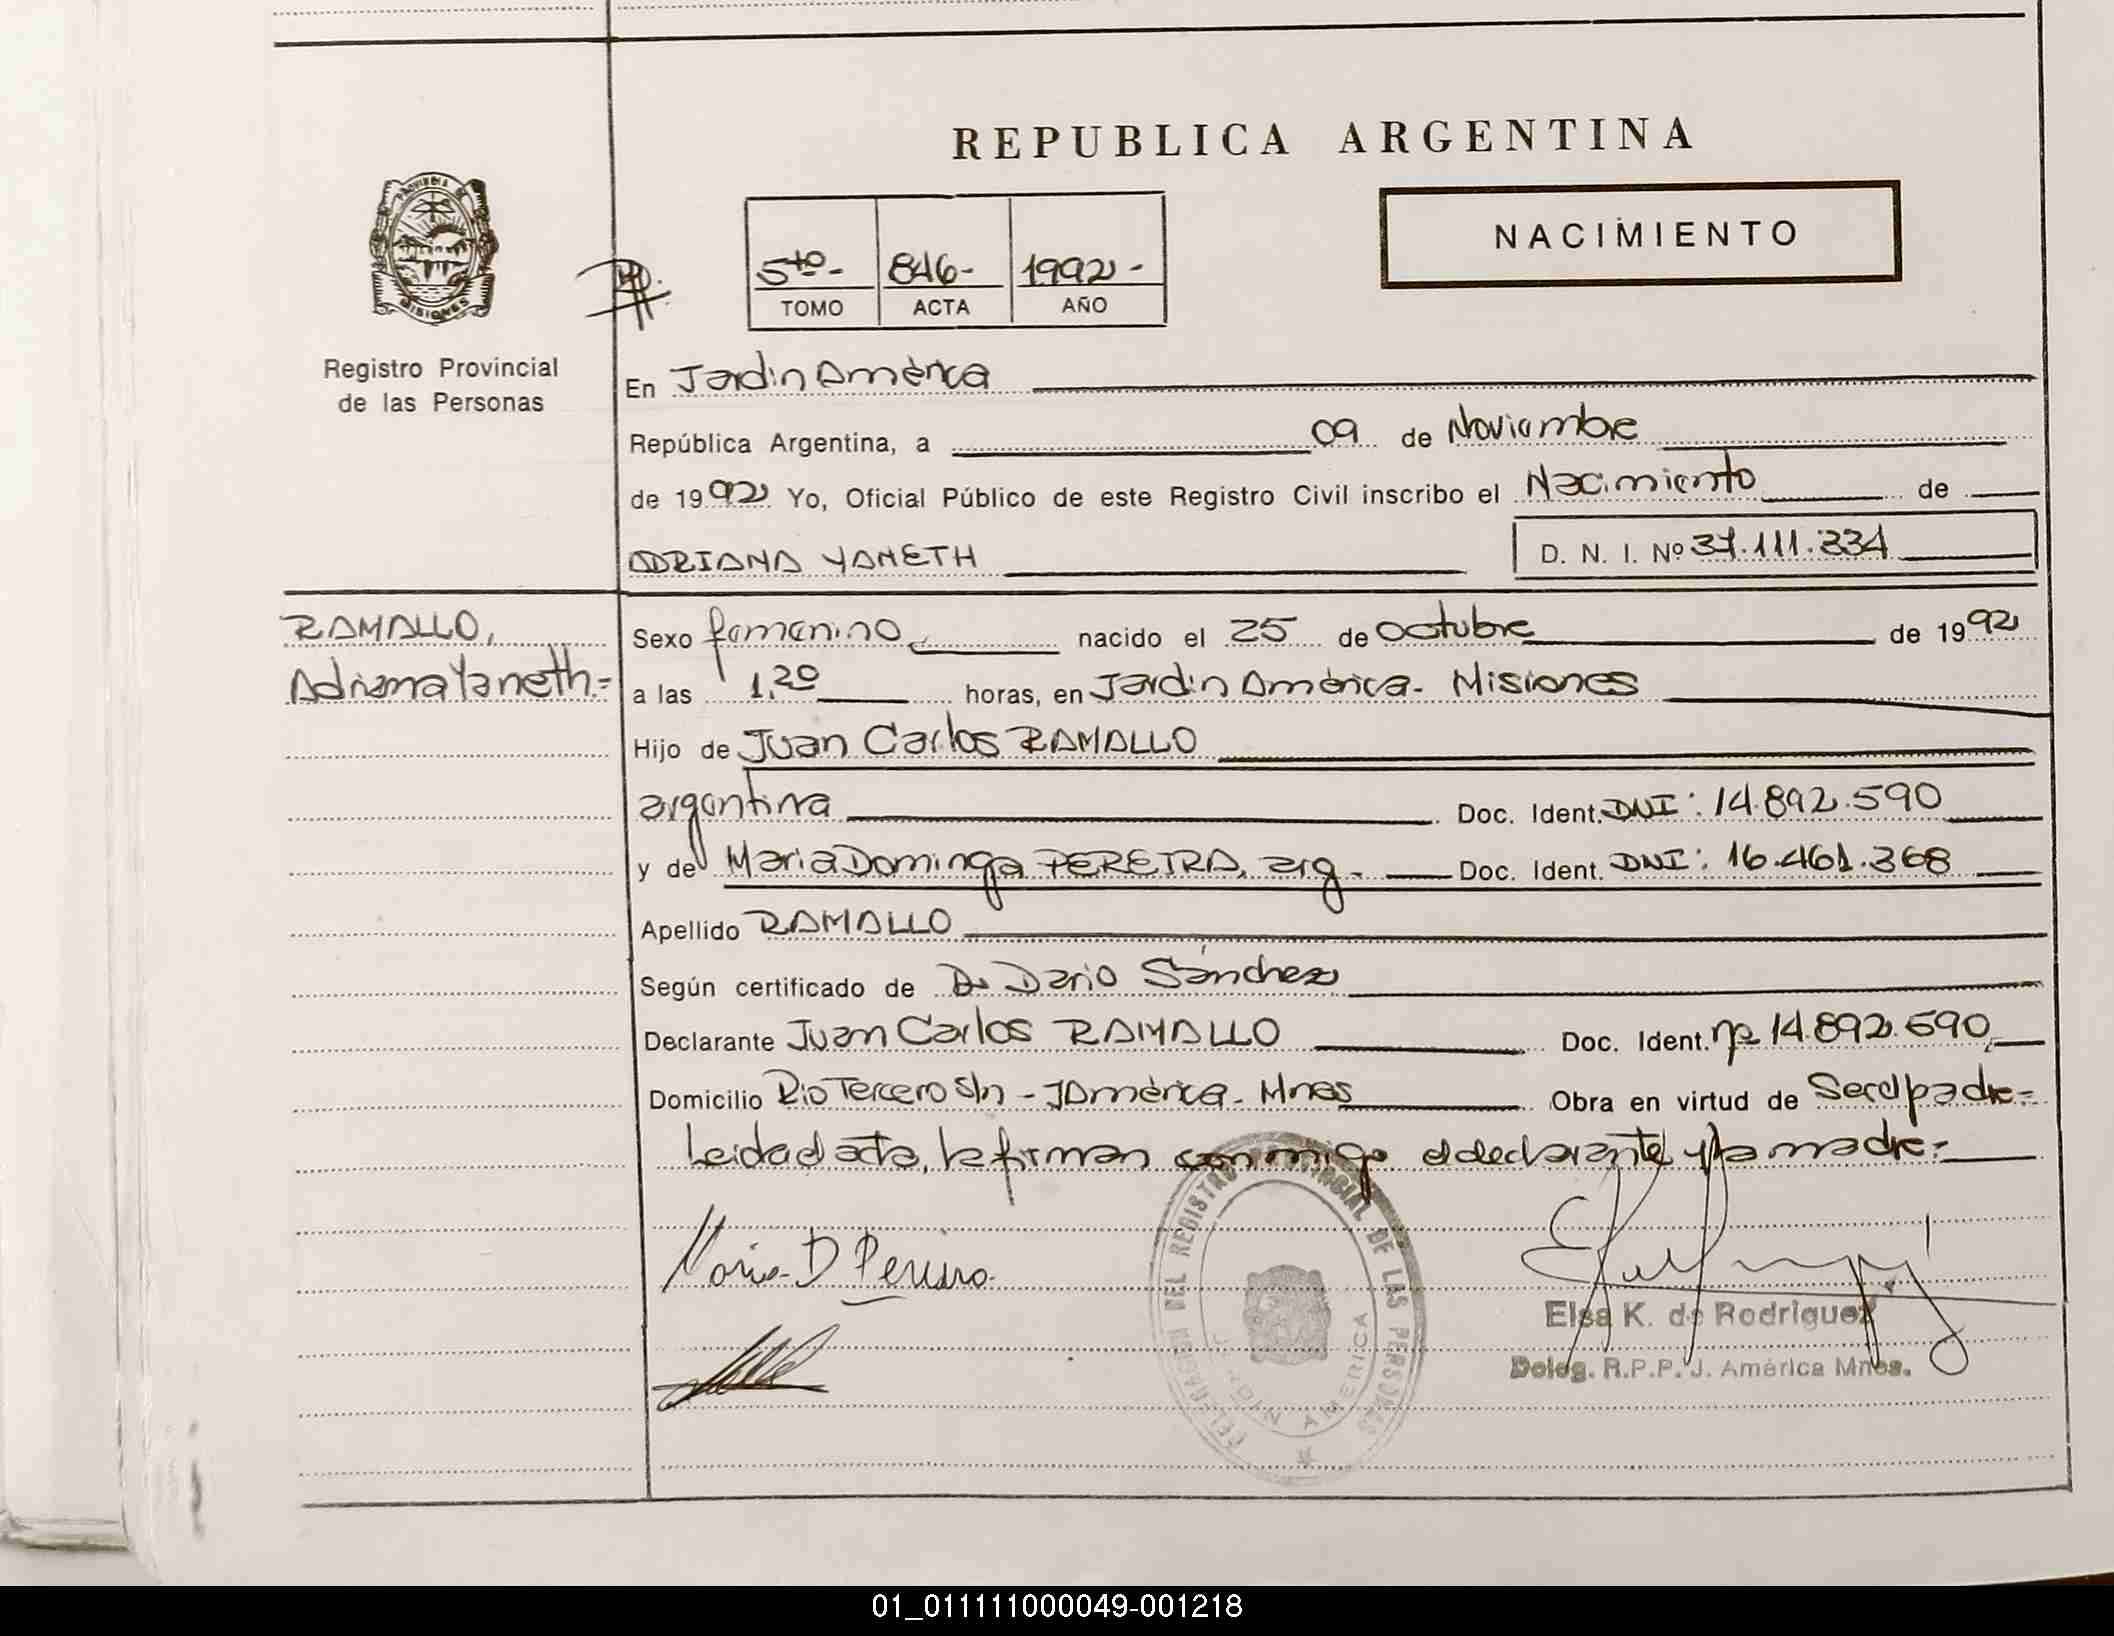 REPUBLICA ARGENTINA
PROVINCIA DE
MISIONES
Registro Provincial
de las Personas
5to- 846- 1992-
TOMO ACTA AÑO
NACIMIENTO
En Jardin América
República Argentina, a 09 de Noviembre
de 1992 Yo, Oficial Público de este Registro Civil inscribo el Nacimiento de
ADRIANA YANETH D. N. I. Nº 37.111.334
RAMALLO,
Adriana Yaneth.=
Sexo femenino, nacido el 25 de octubre de 1992
a las 1,20 horas, en Jardin América- Misiones
Hijo de Juan Carlos RAMALLO
argentina Doc. Ident. DNI: 14.892.590
y de Maria Dominga PEREIRA, arg.- Doc. Ident. DNI: 16.461.368
Apellido RAMALLO
Según certificado de Dr Dario Sánchez
Declarante Juan Carlos RAMALLO Doc. Ident. nº 14.892.590,
Domicilio Rio Tercero s/n - J América- Mnes Obra en virtud de Ser el padre=
Leida el acta, la firman con migo el declarante y la madre=
Maria D Pereira
DELEGACION DEL REGISTRO PROVINCIAL DE LAS PERSONAS
JARDIN AMERICA
Elsa K. de Rodriguez
Deleg. R.P.P. J. América Mnes.
01_011111000049-001218